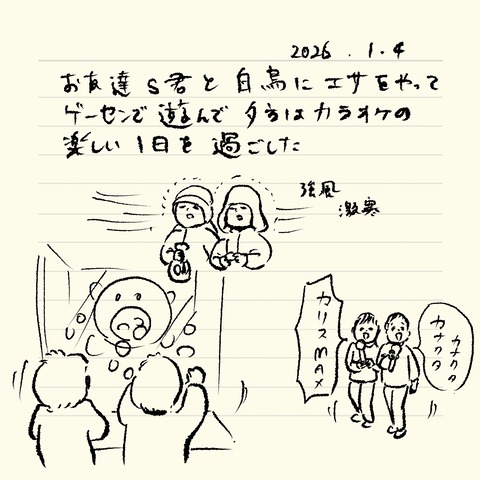 2026.1.4
お友達S君と白鳥にエサをやって
ゲーセンで遊んで夕方はカラオケの
楽しい1日を過ごした
強風
激寒
カリスMAX
カナクタ
カナクタ